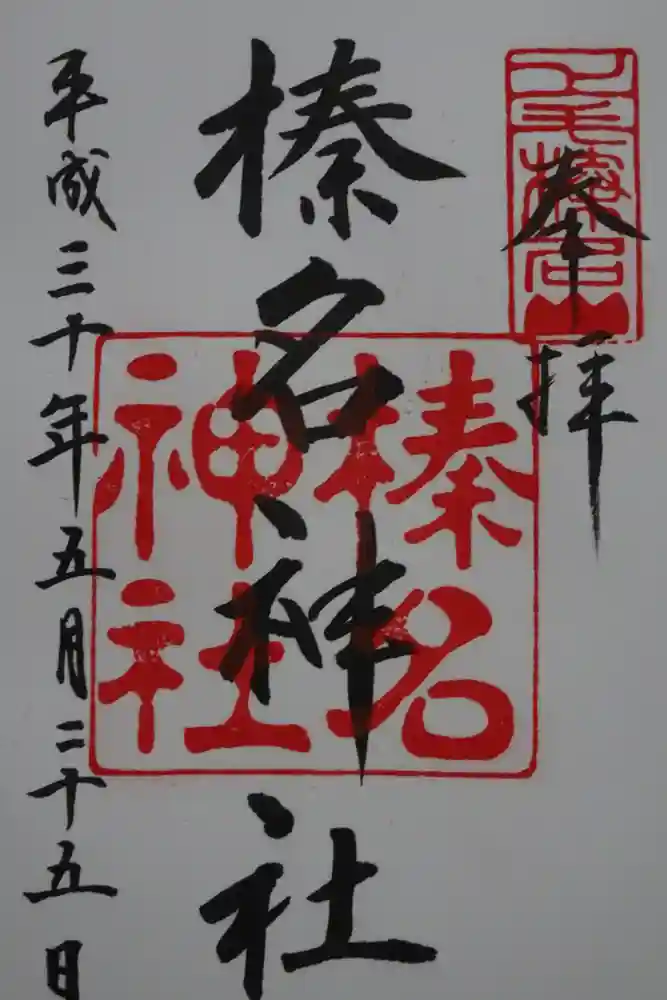 奉拝
上毛榛名山
榛名神社
榛名
神社
平成三十年五月二十五日